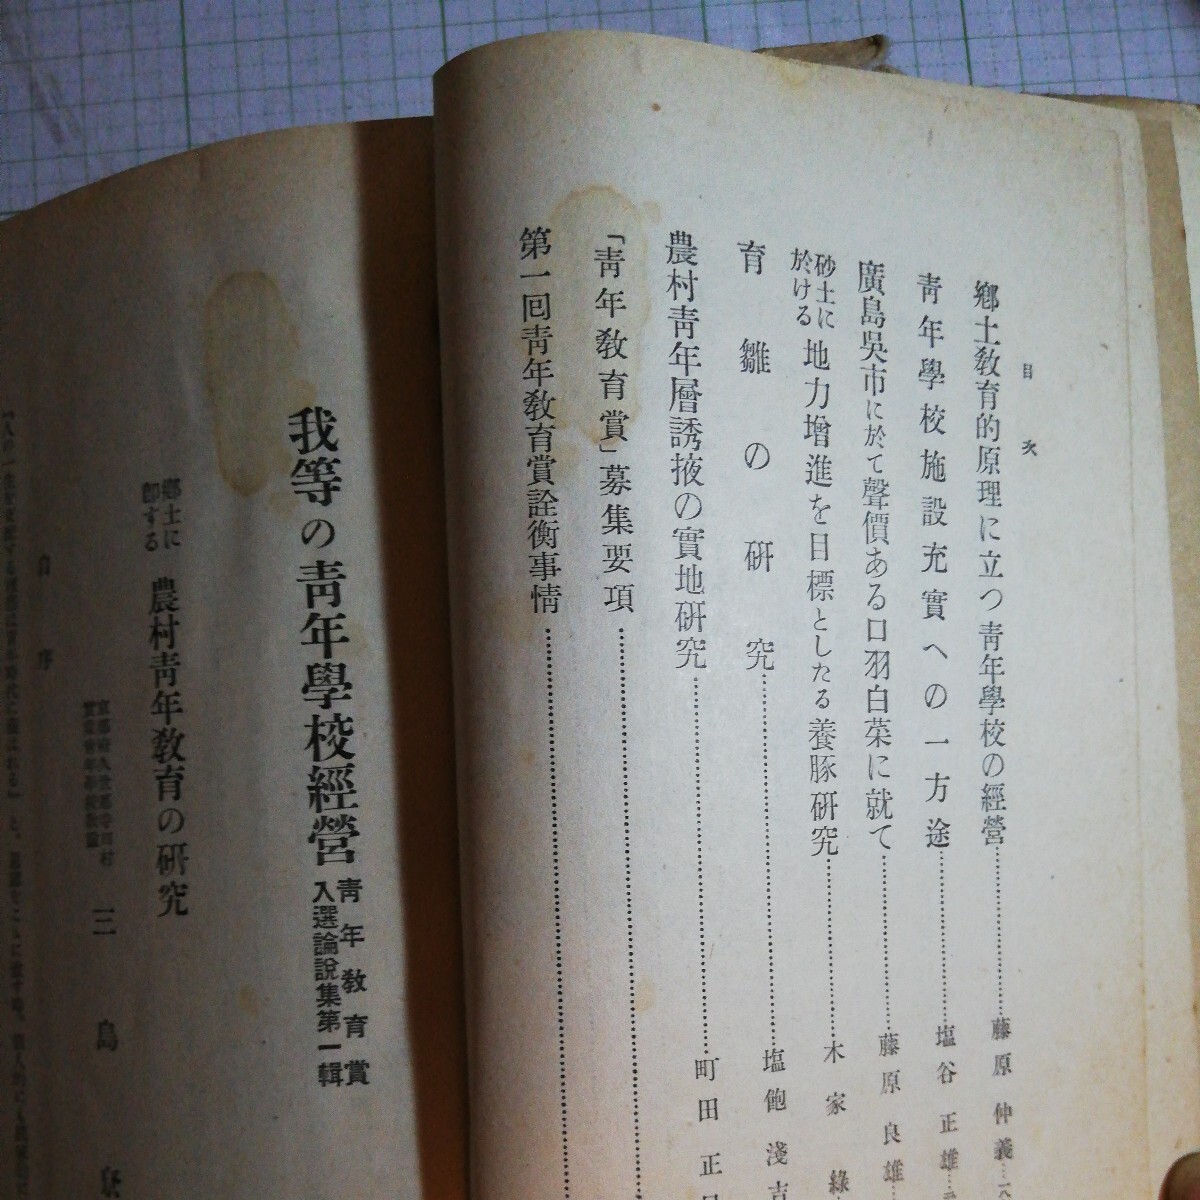 目次
鄕土敎育的原理に立つ靑年學校の經營……藤原仲義
靑年學校施設充實への一方途……塩谷正雄
廣島吳市に於て聲價ある口羽白菜に就て……藤原良雄
砂土に於ける地力增進を目標としたる養豚硏究……木家綠
育雛の硏究……塩飽淺吉
農村靑年層誘掖の實地硏究……町田正
「靑年敎育賞」募集要項……
第一回靑年敎育賞詮衡事情……
我等の靑年學校經營 靑年敎育賞入選論說集第一輯
鄕土に卽する 農村靑年敎育の硏究
京都府久世郡寺田村
三島
自序